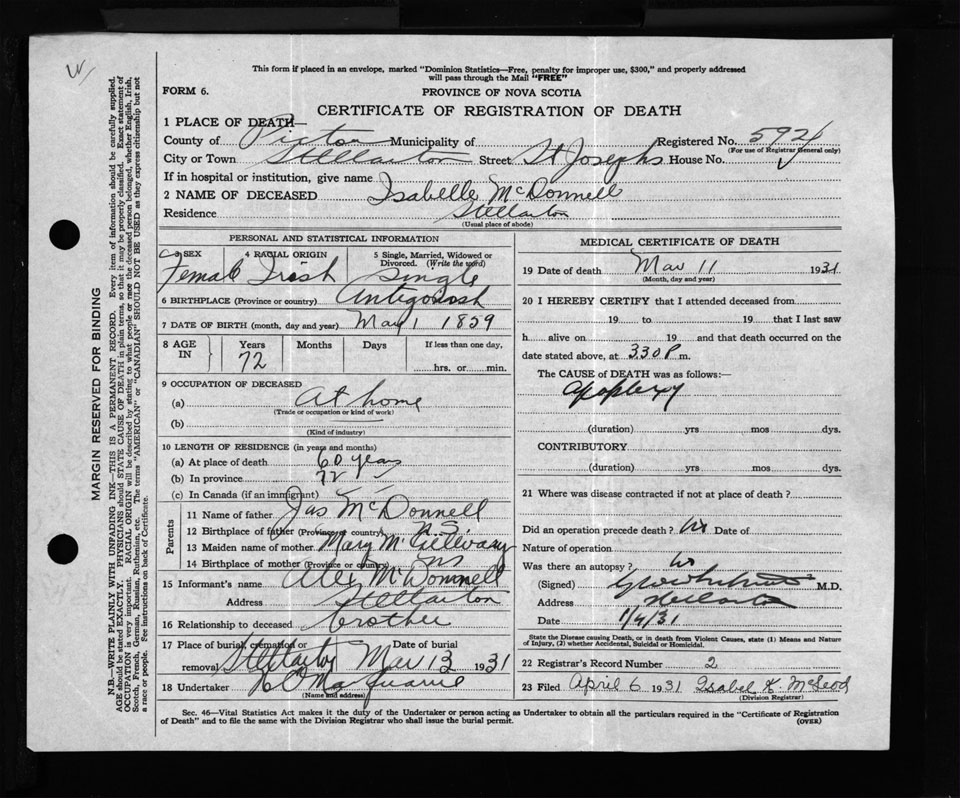 W
This form if placed in an envelope, marked "Dominion Statistics—Free, penalty for improper use, $300," and properly addressed
will pass through the Mail "FREE"
FORM 6.
PROVINCE OF NOVA SCOTIA
CERTIFICATE OF REGISTRATION OF DEATH
1 PLACE OF DEATH—
County of Pictou Municipality of Registered No. 5924
(For use of Registrar General only)
City or Town Stellarton Street St Josephs House No.
If in hospital or institution, give name
2 NAME OF DECEASED Isabelle McDonnell
Residence Stellarton
(Usual place of abode)
PERSONAL AND STATISTICAL INFORMATION
3 SEX Female
4 RACIAL ORIGIN Irish
5 Single, Married, Widowed or Divorced. (Write the word) Single
6 BIRTHPLACE (Province or country) Antigonish
7 DATE OF BIRTH (month, day and year) May 1 1859
8 AGE IN Years 72 Months Days If less than one day, hrs. or min.
9 OCCUPATION OF DECEASED
(a) At home
(Trade or occupation or kind of work)
(b)
(Kind of industry)
10 LENGTH OF RESIDENCE (in years and months)
(a) At place of death 60 years
(b) In province 72
(c) In Canada (if an immigrant)
Parents
11 Name of father Jas McDonnell
12 Birthplace of father (Province or country) N.S.
13 Maiden name of mother Mary McGillivary
14 Birthplace of mother (Province or country) NS
15 Informant's name Alex McDonnell
Address Stellarton
16 Relationship to deceased brother
17 Place of burial, cremation or removal Stellarton Date of burial Mar 13 1931
18 Undertaker
(Name and address)
MEDICAL CERTIFICATE OF DEATH
19 Date of death Mar 11 1931
(Month, day and year)
20 I HEREBY CERTIFY that I attended deceased from
19 to 19 that I last saw
h alive on 19 and that death occurred on the
date stated above, at 3.30 P m.
The CAUSE of DEATH was as follows:—
Apoplexy
(duration) yrs mos dys.
CONTRIBUTORY
(duration) yrs mos dys.
21 Where was disease contracted if not at place of death?
Did an operation precede death? No Date of
Nature of operation
Was there an autopsy? No
(Signed) M.D.
Address Stellarton
Date 1/4/31
State the Disease causing Death, or in death from Violent Causes, state (1) Means and Nature
of Injury, (2) whether Accidental, Suicidal or Homicidal.
22 Registrar's Record Number 2
23 Filed April 6 1931 Isabel K McLeod
(Division Registrar)
Sec. 46—Vital Statistics Act makes it the duty of the Undertaker or person acting as Undertaker to obtain all the particulars required in the "Certificate of Registration
of Death" and to file the same with the Division Registrar who shall issue the burial permit.
(OVER)
MARGIN RESERVED FOR BINDING
N.B.—WRITE PLAINLY WITH UNFADING INK—THIS IS A PERMANENT RECORD. Every item of information should be carefully supplied.
AGE should be stated EXACTLY. PHYSICIANS should STATE CAUSE OF DEATH in plain terms, so that it may be properly classified. Exact statement of
OCCUPATION is very important. RACIAL ORIGIN will be described by stating to what people or race the deceased person belonged, whether English, Irish,
Scotch, French, German, Russian, Ruthenian, etc. The terms "AMERICAN" or "CANADIAN" SHOULD NOT BE USED as they express citizenship but not
a race or people. See instructions on back of Certificate.